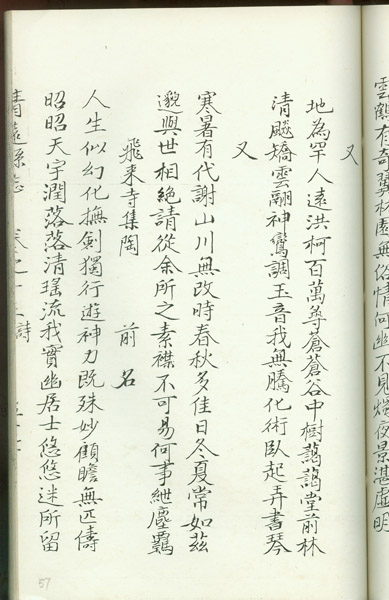 雲鶴有奇翼林園無俗情何幽不見燭夜景湛虛明
又
地為罕人遠洪柯百萬尋蒼蒼谷中樹藹藹堂前林
清飈矯雲翮神鸞調玉音我無騰化術臥起弄書琴
又
寒暑有代謝山川無改時春秋多佳日冬夏常如茲
邈與世相絕請從余所之素襟不可易何事紲塵羈
飛來寺集陶 前名
人生似幻化撫劍獨行遊神力既殊妙顧瞻無匹儔
昭昭天宇濶落落清瑤流我實幽居士悠悠迷所留
清遠縣志 卷之十 詩
57